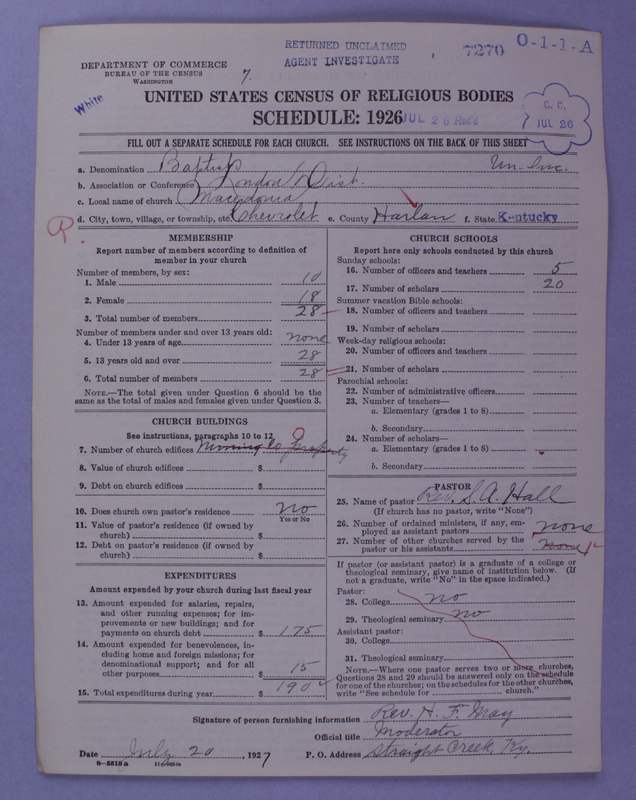 RETURNED UNCLAIMED
AGENT INVESTIGATE
7270
O-1-1-A
DEPARTMENT OF COMMERCE
BUREAU OF THE CENSUS
WASHINGTON
7.
White
UNITED STATES CENSUS OF RELIGIOUS BODIES
SCHEDULE: 1926
JUL 26 Rec'd
C. C.
JUL 26
FILL OUT A SEPARATE SCHEDULE FOR EACH CHURCH. SEE INSTRUCTIONS ON THE BACK OF THIS SHEET
a. Denomination Baptist Un. Inc.
b. Association or Conference London Dist.
c. Local name of church Macedonia
d. City, town, village, or township, etc. Chevrolet e. County Harlan f. State Kentucky
R.
MEMBERSHIP
Report number of members according to definition of
member in your church
Number of members, by sex:
1. Male 10
2. Female 18
3. Total number of members 28
Number of members under and over 13 years old:
4. Under 13 years of age none
5. 13 years old and over 28
6. Total number of members 28
NOTE.—The total given under Question 6 should be the
same as the total of males and females given under Question 3.
CHURCH BUILDINGS
See instructions, paragraphs 10 to 12
7. Number of church edifices Mining Co Property 0
8. Value of church edifices $
9. Debt on church edifices $
10. Does church own pastor's residence no
Yes or No
11. Value of pastor's residence (if owned by
church) $
12. Debt on pastor's residence (if owned by
church) $
EXPENDITURES
Amount expended by your church during last fiscal year
13. Amount expended for salaries, repairs,
and other running expenses; for im-
provements or new buildings; and for
payments on church debt $ 175
14. Amount expended for benevolences, in-
cluding home and foreign missions; for
denominational support; and for all
other purposes $ 15
15. Total expenditures during year $ 190
CHURCH SCHOOLS
Report here only schools conducted by this church
Sunday schools:
16. Number of officers and teachers 5
17. Number of scholars 20
Summer vacation Bible schools:
18. Number of officers and teachers
19. Number of scholars
Week-day religious schools:
20. Number of officers and teachers
21. Number of scholars
Parochial schools:
22. Number of administrative officers
23. Number of teachers—
a. Elementary (grades 1 to 8)
b. Secondary
24. Number of scholars—
a. Elementary (grades 1 to 8)
b. Secondary
PASTOR
25. Name of pastor Rev. S. A. Hall
(If church has no pastor, write "None")
26. Number of ordained ministers, if any, em-
ployed as assistant pastors none
27. Number of other churches served by the
pastor or his assistants none
If pastor (or assistant pastor) is a graduate of a college or
theological seminary, give name of institution below. (If
not a graduate, write "No" in the space indicated.)
Pastor:
28. College no
29. Theological seminary no
Assistant pastor:
30. College
31. Theological seminary
NOTE.—Where one pastor serves two or more churches,
Questions 28 and 29 should be answered only on the schedule
for one of the churches; on the schedules for the other churches,
write "See schedule for church."
Signature of person furnishing information Rev. H. F. May
Official title Moderator
Date July 20, 1927 P. O. Address Straight Creek, Ky.